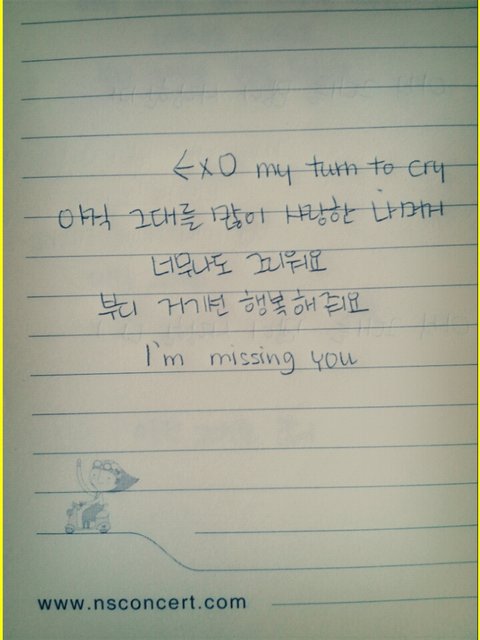 EXO my turn to cry
아직 그대를 많이 사랑한 나머지
너무나도 그리워요
부디 거기선 행복해줘요
I'm missing you
www.nsconcert.com